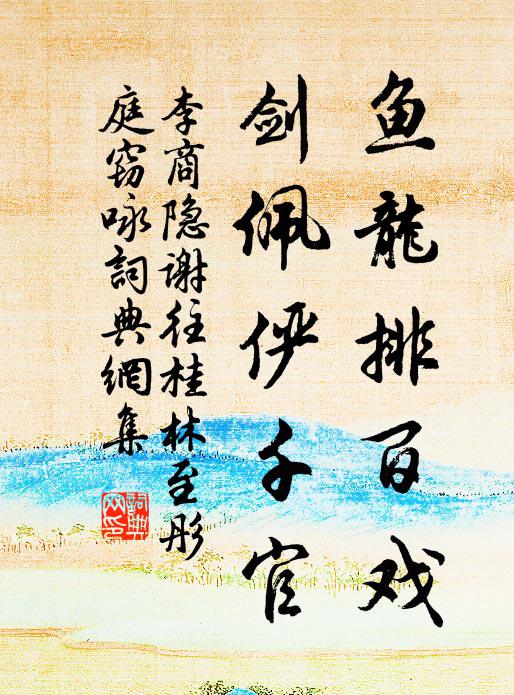 鱼龍排百戏
剑佩俨千官
李商隐谢往桂林至彤
庭窃咏詞典網集
詞典网印